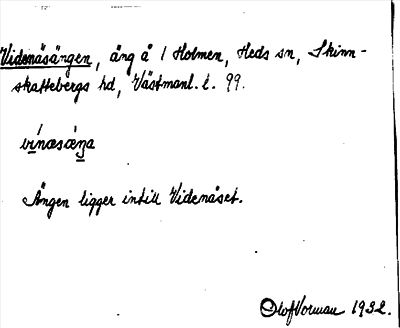 Videnäsängen, äng å 1 Holmen, Heds sn, Skinn-
skattebergs hd, Västmanl. l. 99.
vínæsæŋa
Ängen ligger intill Videnäset.
Olof Vorman 1932.